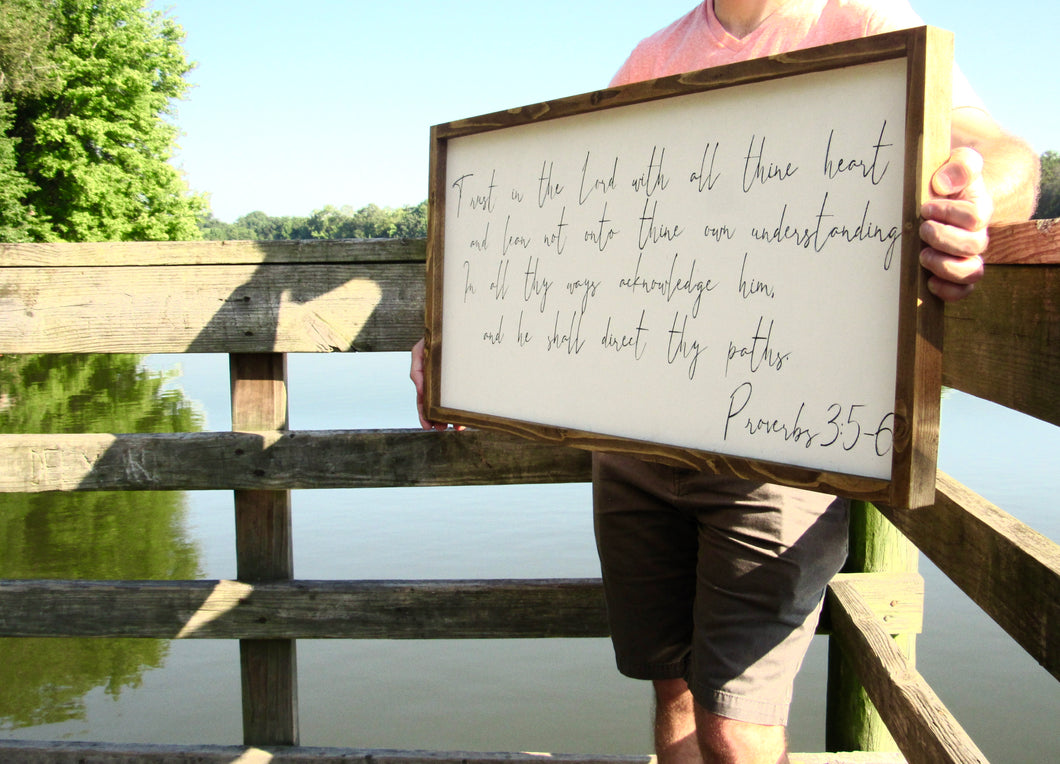 Trust in the Lord with all thine heart
and lean not onto thine own understanding
In all thy ways acknowledge him,
and he shall direct thy paths.
Proverbs 3:5-6